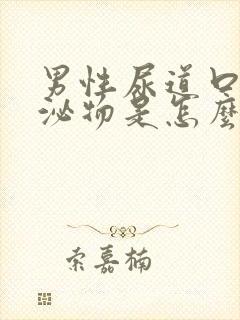 男性尿道口
泌物是怎麼
索嘉楠